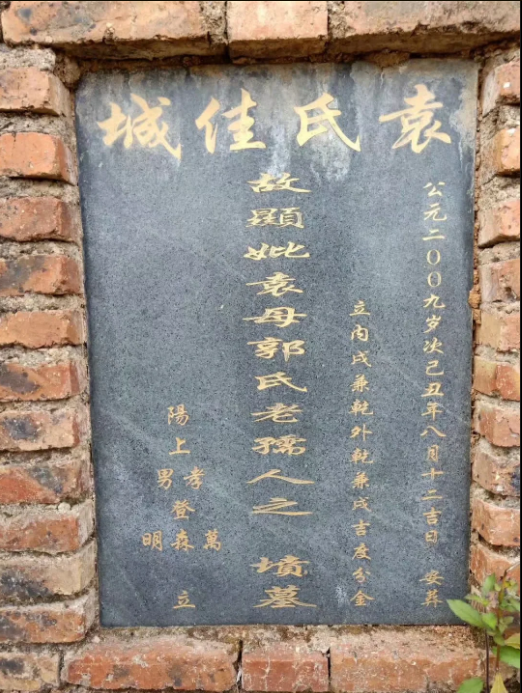 袁氏佳城
公元二00九岁次己丑年八月十二吉日 安葬
立内戌兼乾外乾兼戌吉度分金
故顯妣袁母郭氏老孺人之 墳墓
陽上孝男登萬森明 立